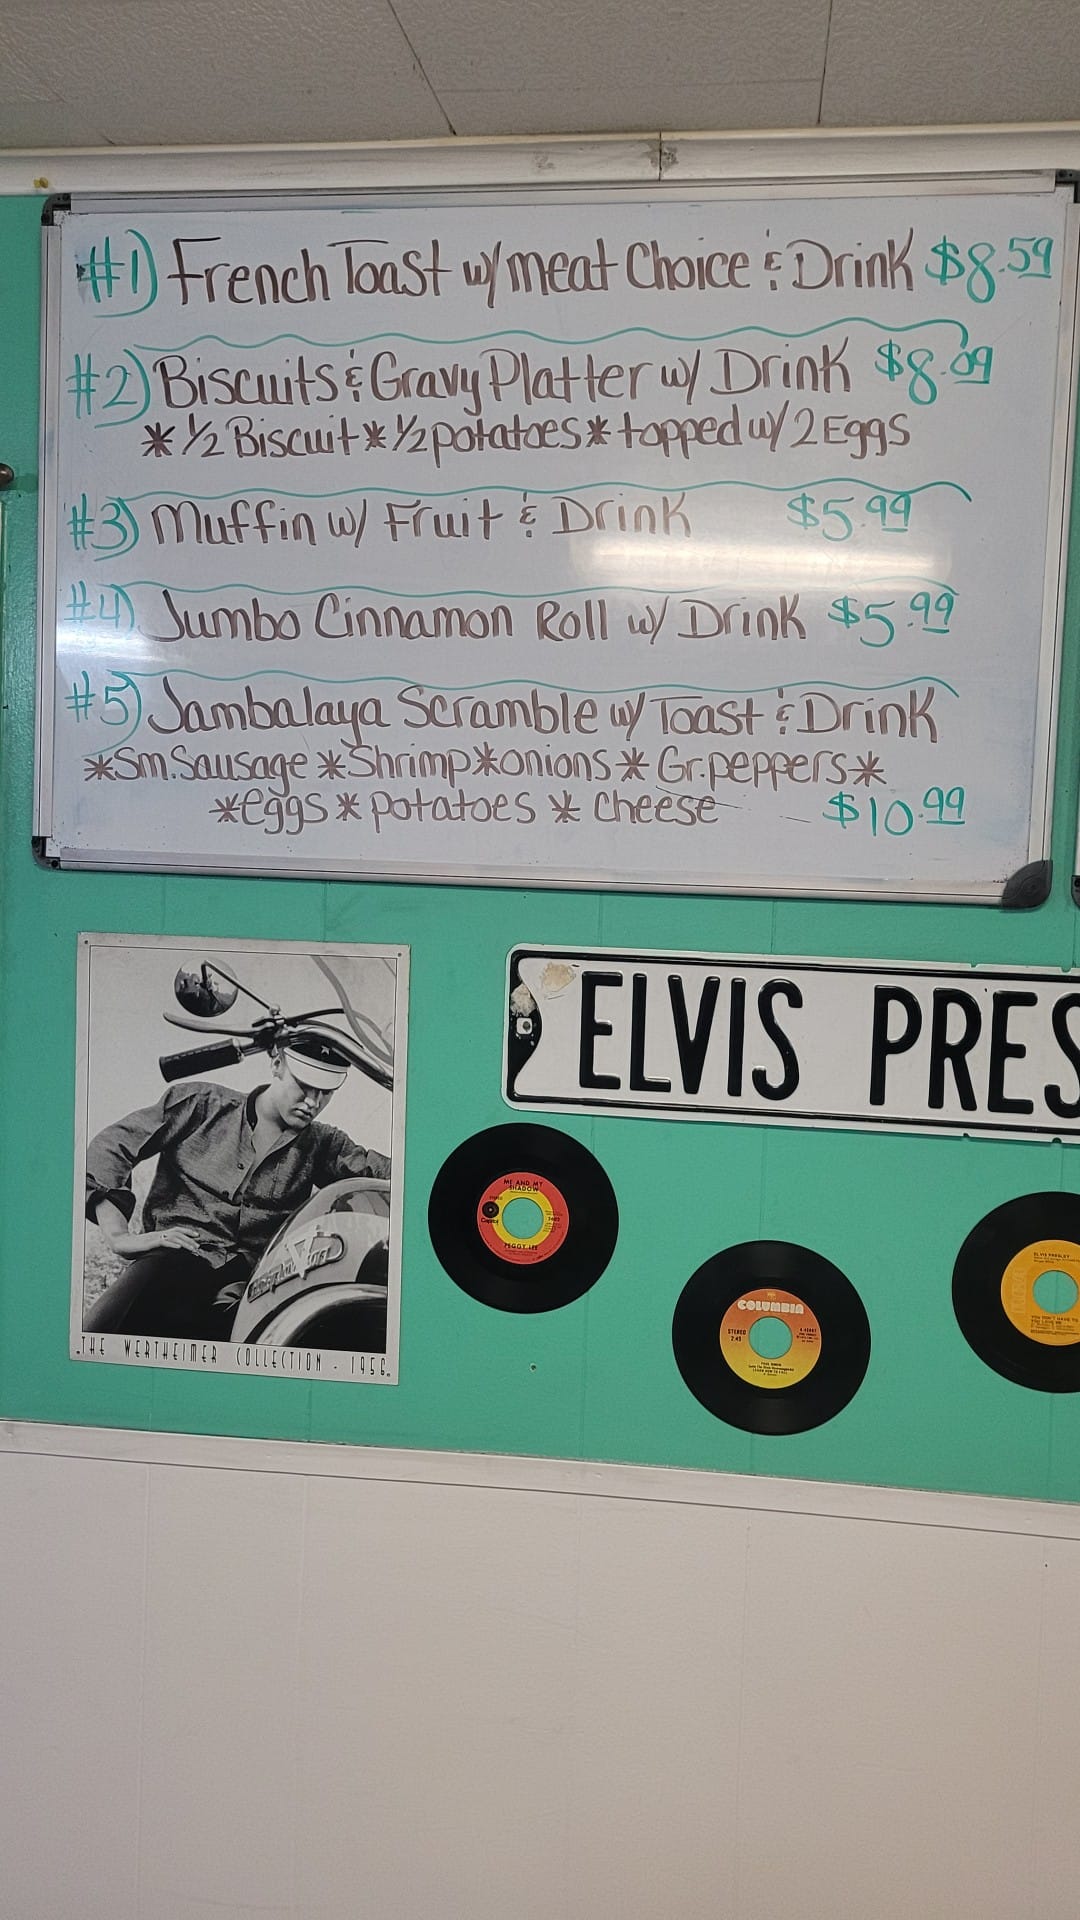 #1) French Toast w/ meat Choice & Drink $8.59
#2) Biscuits & Gravy Platter w/ Drink $8.09
* 1/2 Biscuit * 1/2 potatoes * topped w/ 2 Eggs
#3) Muffin w/ Fruit & Drink $5.99
#4) Jumbo Cinnamon Roll w/ Drink $5.99
#5) Jambalaya Scramble w/ Toast & Drink
*Sm. Sausage *Shrimp *onions * Gr. peppers *
*eggs * potatoes * cheese $10.99
ELVIS PRES
THE WERTHEIMER COLLECTION - 1956
ME AND MY
SHADOW
STEREO
Capitol
PEGGY LEE
COLUMBIA
STEREO
2:45
PAUL SIMON
ELVIS PRESLEY
YOU DON'T HAVE TO
YOU LOVE ME